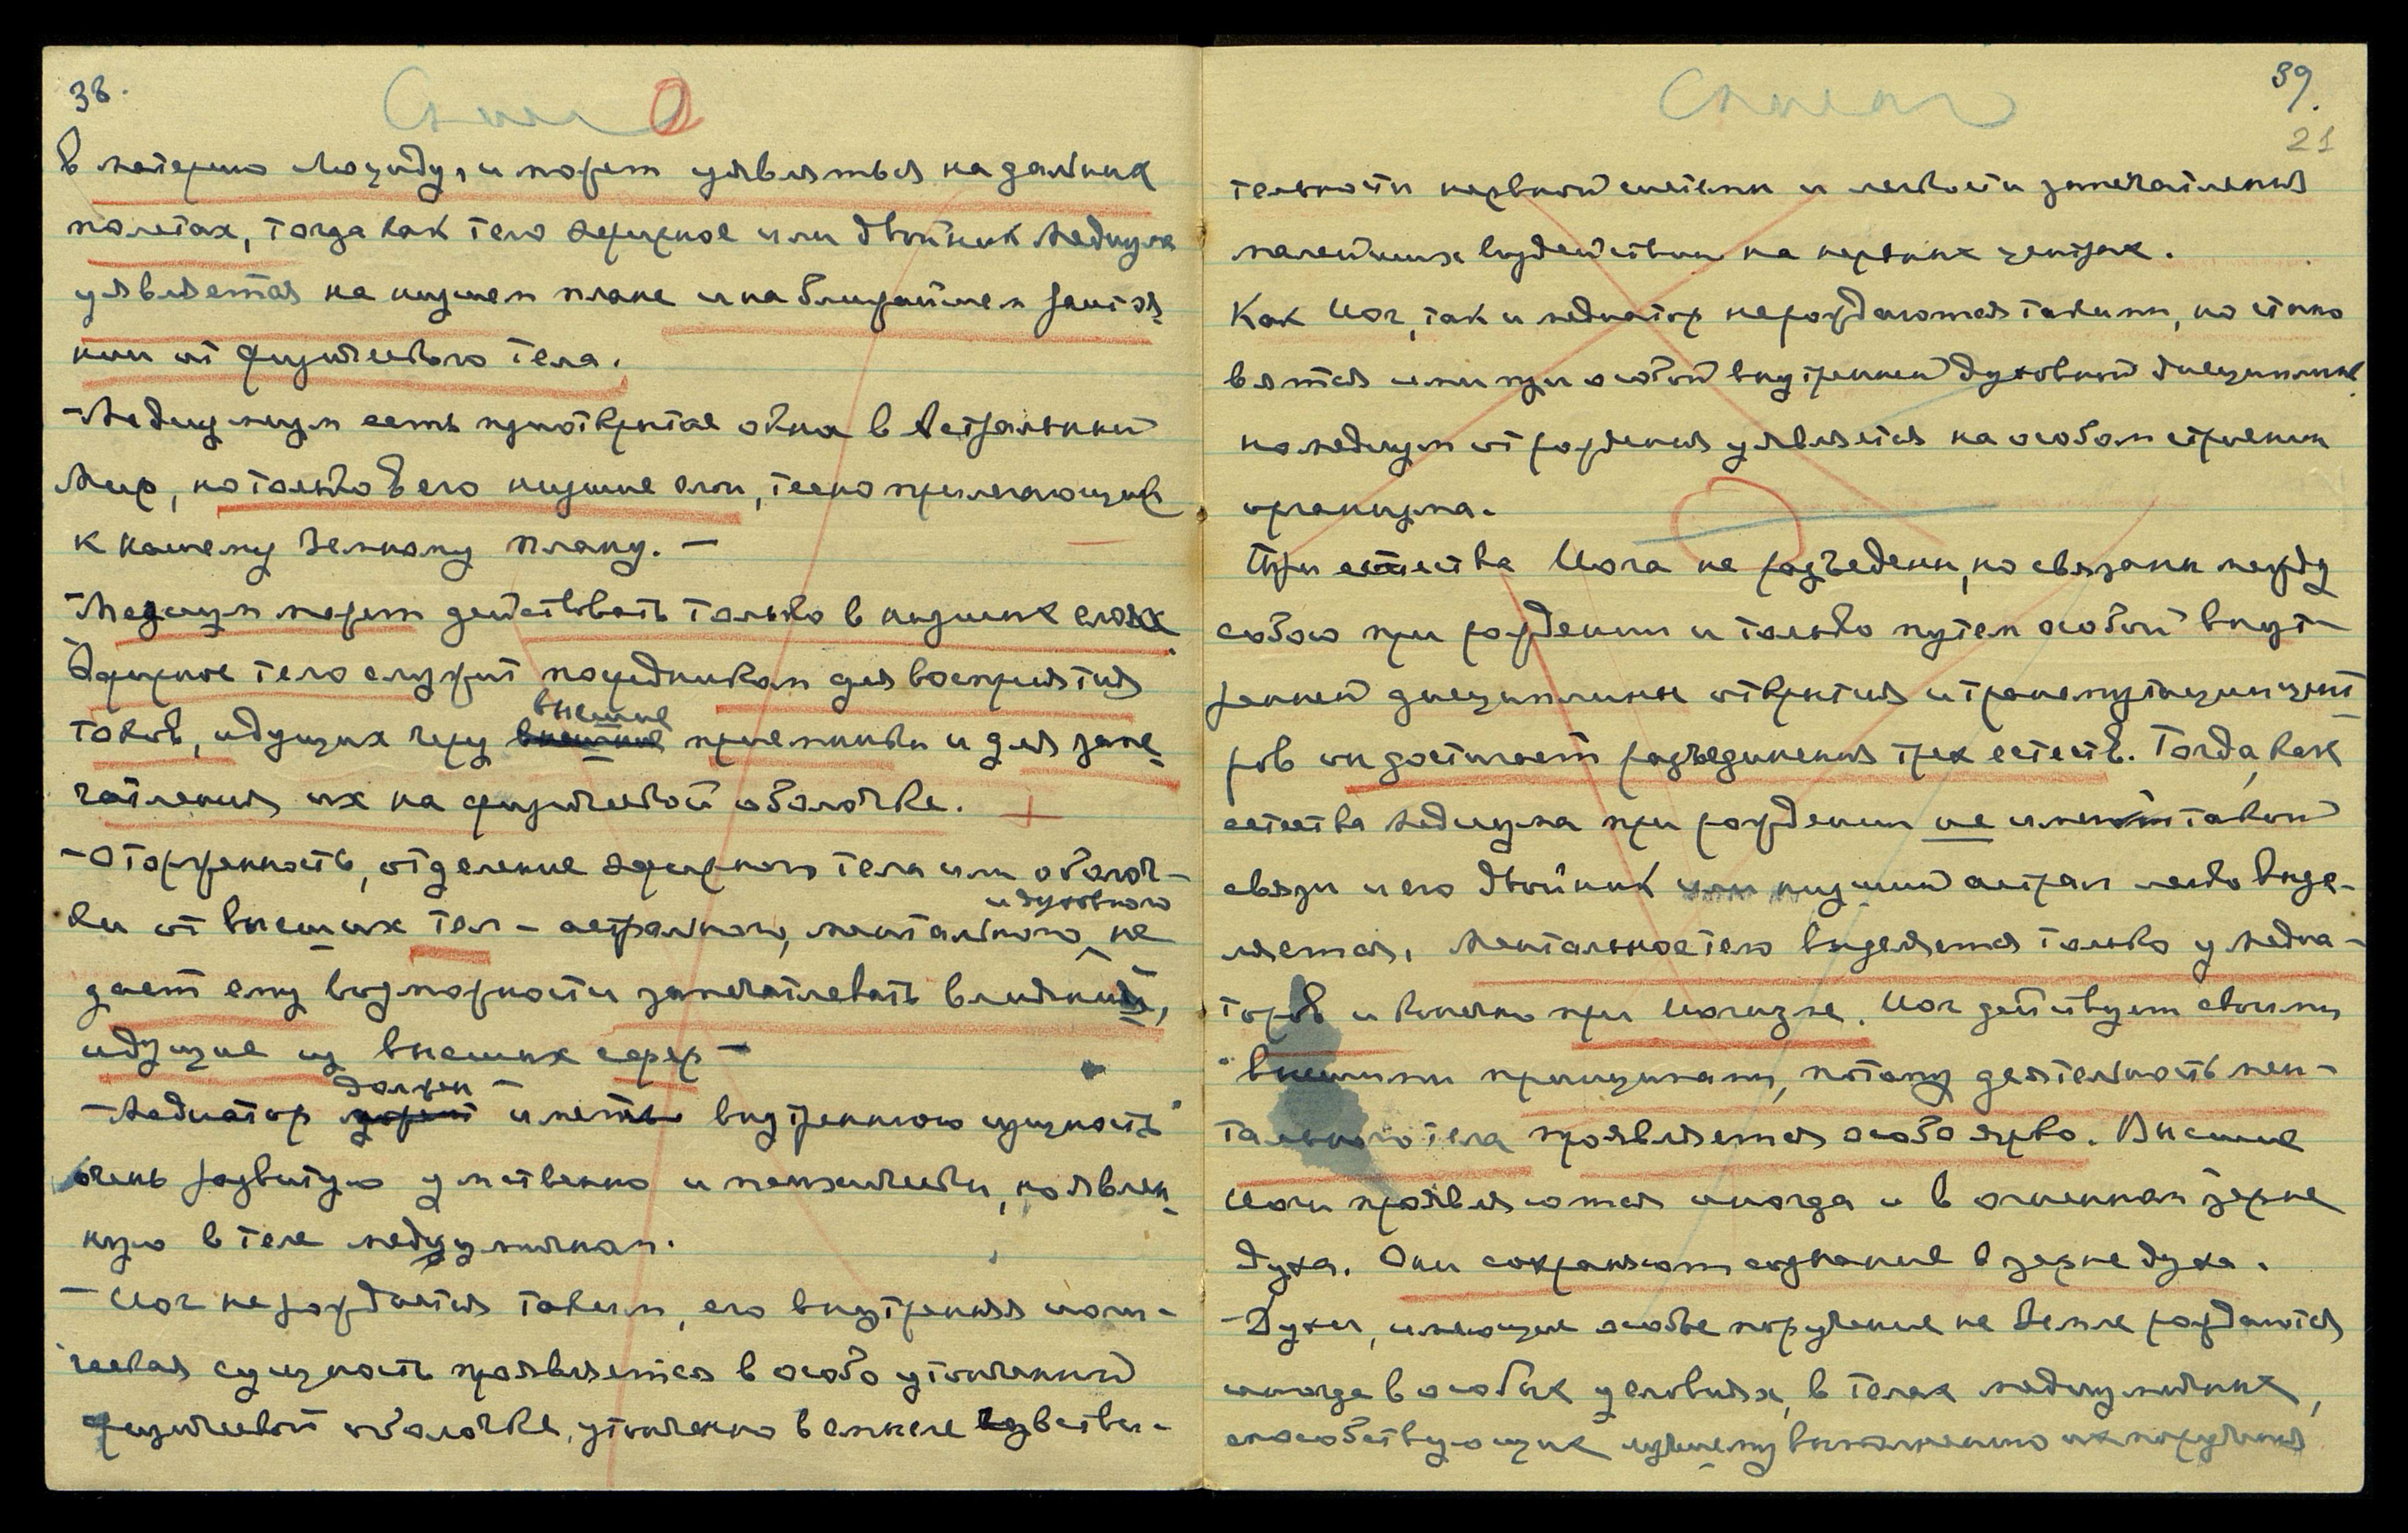 38.
в материю Люциду, и может уявляться на дальних
полетах, тогда как тело эфирное или двойник медиума
уявляется на низшем плане и на ближайшем расстоя-
нии от физического тела.
- Медиумизм есть приоткрытое окно в Астральный
Мир, но только в его низшие слои, тесно прилегающие
к нашему Земному плану. -
- Медиум может действовать только в низших слоях.
Эфирное тело служит посредником для восприятия
токов, идущих через высшие приемники и для запе-
чатления их на физической оболочке. +
- Отторженность, отделение эфирного тела или оболоч-
ки от высших тел - астрального, ментального и духовного не
дает ему возможности запечатлевать влияний,
идущие из высших сфер -
- Медиатор должен иметь внутреннюю сущность
очень развитую умственно и психически, но явлен-
ную в теле медиумичном.
- Йог не рождается таким, его внутренняя йоги-
ческая сущность проявляется в особо утонченной
физической оболочке, утонченно в смысле чувстви-
Списан
39.
21
тельности нервной системы и легкости запечатления
малейших воздействий на нервных центрах.
Как Йог, так и медиатор не рождаются такими, но стано
вятся ими при особой внутренней духовной дисциплине,
но медиум от рождения уявляется на особом строении
организма.
Три естества Йога не разъедены, но связаны между
собою при рождении и только путем особой внут-
ренней дисциплины открытия и трансмутации цент-
ров он достигает разъединения трех естеств. Тогда, как
естества медиума при рождении не имеют такой
связи и его двойник или низший астрал легко выде-
ляется. Ментальное тело выделяется только у медиа-
торов и конечно при Йогизме. Йог действует своими
высшими принципами, потому деятельность мен-
тального тела проявляется особо ярко. Высшие
Йоги проявляются иногда и в огненном зерне
духа. Они сохраняют сознание в зерне духа.
- Духи, имеющие особые поручение на Земле рождаются
иногда в особых условиях, в телах медиумичных,
способствующих лучшему выполнению их поручения